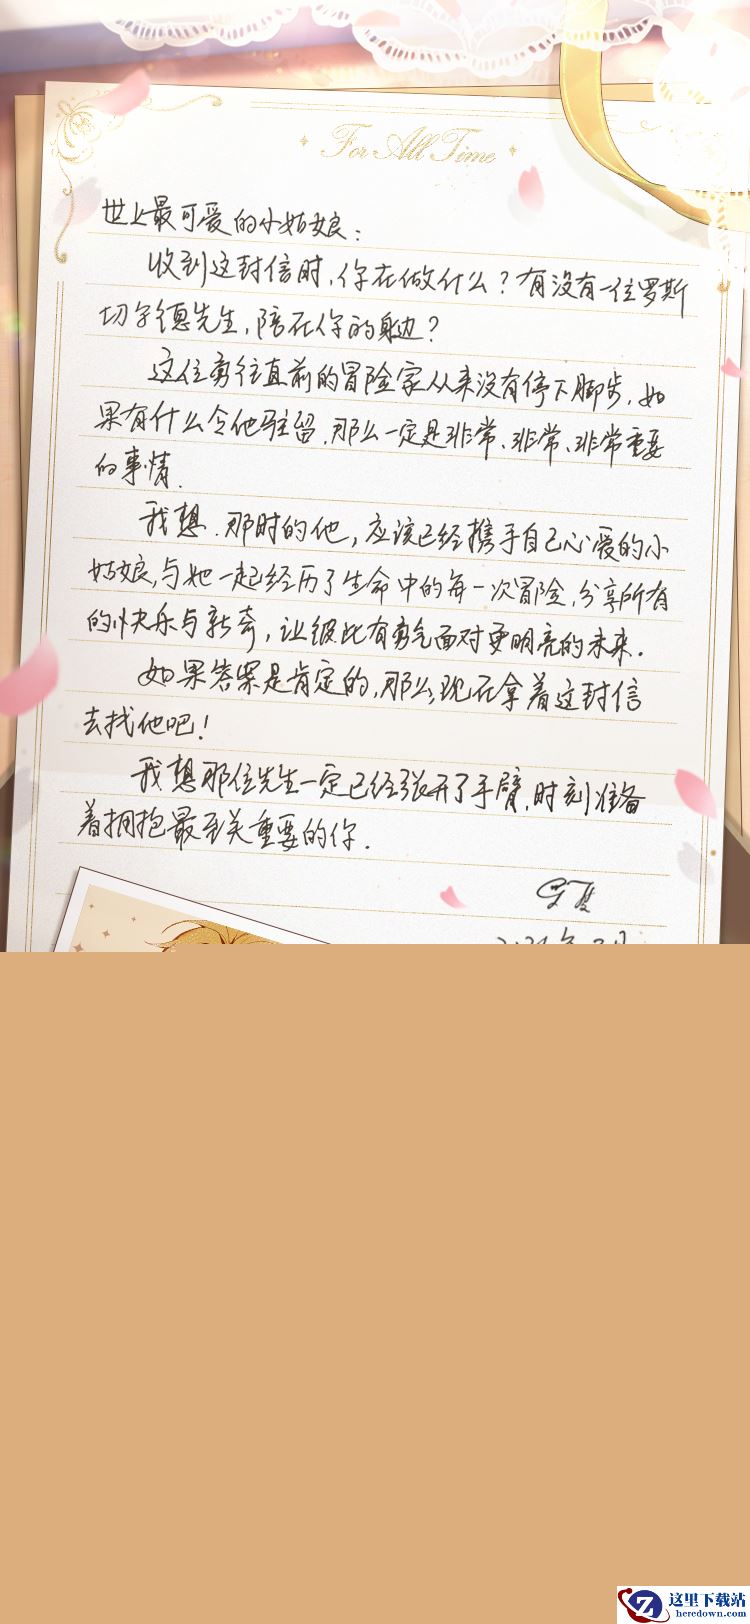 For All Time
世上最可爱的小姑娘：
收到这封信时，你在做什么？有没有一位罗斯
切尔德先生，陪在你的身边？
这位勇往直前的冒险家从来没有停下脚步，如
果有什么令他驻留，那么一定是非常、非常、非常重要
的事情.
我想，那时的他，应该已经携手自己心爱的小
姑娘，与她一起经历了生命中的每一次冒险，分享所有
的快乐与新奇，让彼此有勇气面对更明亮的未来.
如果答案是肯定的，那么，现在拿着这封信
去找他吧！
我想那位先生一定已经张开了手臂，时刻准备
着拥抱最至关重要的你.
这里下载站
heredown.com